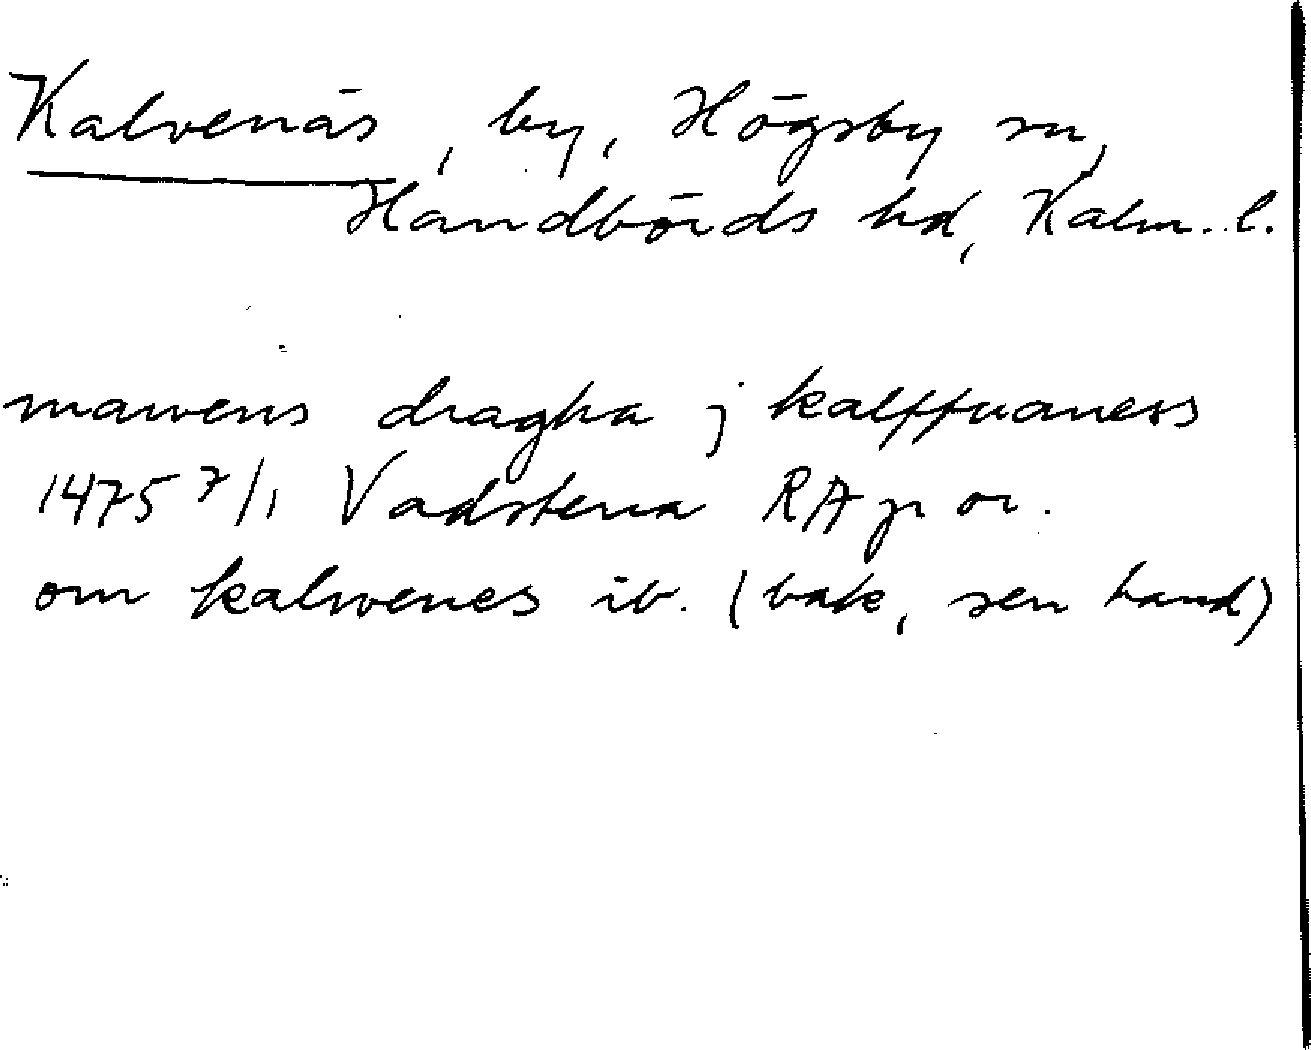 Kalvenäs, by, Högsby sn,
Handbörds hd, Kalm. l.
mawens dragha j kalffuaness
1475 7/1 Vadstena RA p or.
om kalwenes ib. (bak, sen hand)